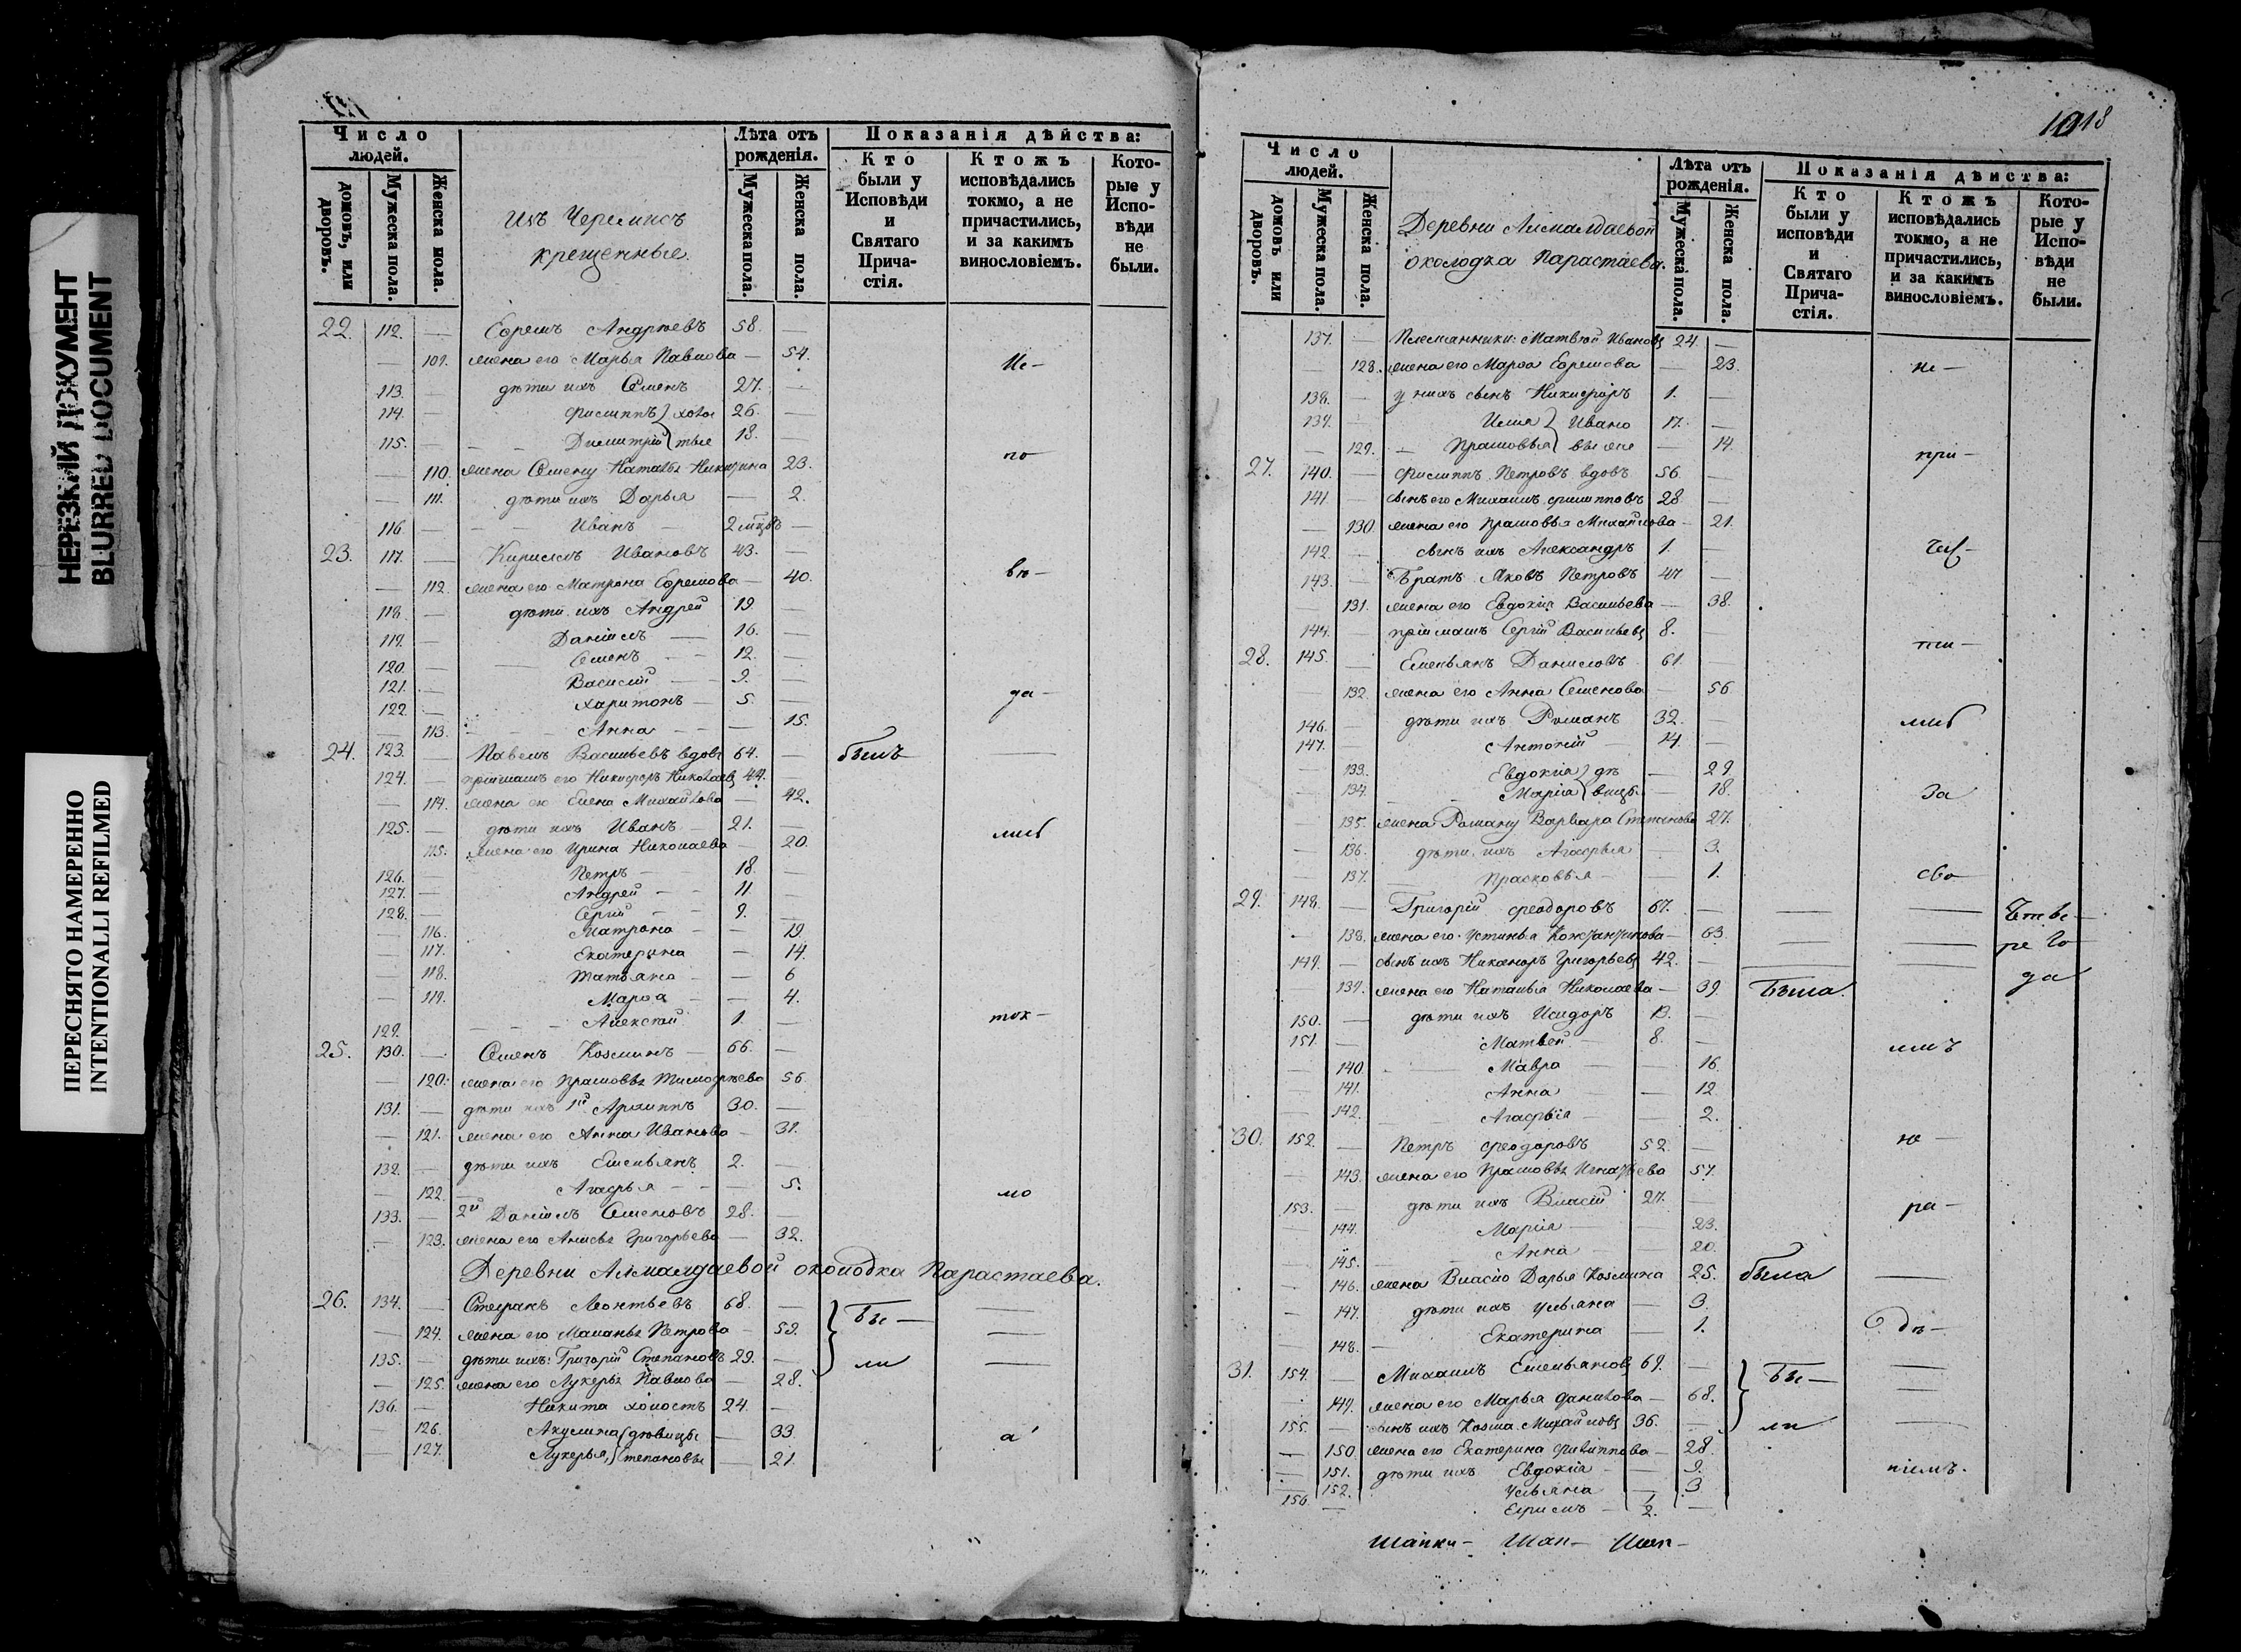 НЕРЕЗКИЙ ДОКУМЕНТ
BLURRED DOCUMENT
ПЕРЕСНЯТО НАМЕРЕННО
INTENTIONALLI REFILMED
Число людей.
домовъ, или дворовъ.
Мужеска пола.
Женска пола.
Изъ Черемисъ
крещенные.
Лѣта отъ рожденія.
Мужеска пола.
Женска пола.
Показанія дѣйства:
Кто были у Исповѣди и Святаго Причастія.
Ктожъ исповѣдались токмо, а не причастились, и за какимъ винословіемъ.
Которые у Исповѣди не были.
22. 112. — Ефремъ Андреевъ 58. —
— 109. жена его Марья Павлова — 54. Ис-
113. — дѣти ихъ Семенъ 27. —
114. — Филиппъ } холос 26. —
115. — Димитрій } тые 18. —
— 110. жена Семену Наталья Никитина 23. по
— 111. дѣти ихъ Дарья — 2.
116. — Иванъ — 2 мѣцъ —
23. 117. — Кириллъ Ивановъ 43. —
— 112. жена его Матрона Ефремова — 40. вѣ-
118. — дѣти ихъ Андрей 19 —
119. — Даніилъ — 16. —
120. — Семенъ — 12. —
121. — Василій — 9. —
122. — Харитонъ — 5. — да-
— 113. Анна — 15.
24. 123. — Павелъ Васильевъ вдовъ 64. — былъ —
124. — пріимашъ его Никифоръ Николаевъ 44. —
— 114. жена его Елена Михайлова — 42.
125. — дѣти ихъ Иванъ — 21. — лись
115. жена его Ирина Николаева — 20.
126. — Петръ — 18. —
127. — Андрей — 11 —
128. — Сергій — 9. —
— 116. Матрона — 19.
— 117. Екатерина — 14.
— 118. Татьяна — 6
— 119. Марѳа — 4.
129. Алексѣй 1. — ток-
25. 130. — Семенъ Козминъ — 66. —
— 120. жена его Прасковья Тимофѣева 56
131. — дѣти ихъ 1й Архиппъ 30. —
— 121. жена его Анна Иванова — 31.
132. — дѣти ихъ Емельянъ 2. —
— 122. Агафья — 5. мо
133. — 2й Даніилъ Семеновъ 28. —
— 123. жена его Анисья Григорьева — 32.
Деревни Алмалдаевой околодка Парастаева.
26. 134. — Стефанъ Леонтьевъ 68. — } Бы- —
— 124. жена его Маланья Петрова — 59. —
135. — дѣти ихъ: Григорій Степановъ 29. — ли —
— 125. жена его Лукерья Павлова — 28.
136. — Никита холостъ 24. —
— 126. Акулина } дѣвицы — 33. а
— 127. Лукерья } Степановы — 21.
1018
Число людей.
домовъ или дворовъ.
Мужеска пола.
Женска пола.
Деревни Алмалдаевой
околодка Парастаева.
Лѣта отъ рожденія.
Мужеска пола.
Женска пола.
Показанія дѣйства:
Кто были у исповѣди и Святаго Причастія.
Ктожъ исповѣдались токмо, а не причастились, и за какимъ винословіемъ.
Которые у Исповѣди не были.
137. — Племянники: Матвѣй Ивановъ 24. —
— 128. жена его Марѳа Ефремова — 23. не-
138. — у нихъ сынъ Никифоръ 1. —
139. — Илья } Ивано 17. —
— 129. Прасковья } вы же — 14. при-
27. 140. — Филиппъ Петровъ вдовъ 56. —
141. — сынъ его Михаилъ Филипповъ 28 —
— 130. жена его Прасковья Михайлова — 21.
142. — сынъ ихъ Александръ 1. —
143. — Братъ Яковъ Петровъ 47 —
— 131. жена его Евдокія Васильева — 38.
144. — пріимашъ Сергій Васильевъ 8. —
28. 145. — Емельянъ Даниловъ 61. — сти-
— 132. жена его Анна Семенова — 56
146. — дѣти ихъ Романъ 32. — лись
147. — Антоній — 14. —
133. Евдокія } дѣ — 29
— 134. Марія } вицы. — 18. за
— 135. жена Роману Варвара Степанова 27.
— 136. дѣти ихъ Агафья — 3.
137. Прасковья — 1. сво
29. 148. — Григорій Феодоровъ 67. — — —
— 138. жена его Устинья Константинова — 63. — —
149. — сынъ ихъ Никаноръ Григорьевъ 42. — — —
— 139. жена его Наталья Николаева — 39. Была. да
150. — дѣти ихъ Исидоръ 13. —
151. — Матвей — 8. —
— 140. Мавра — 16.
— 141. Анна — 12
— 142. Агафія — 2.
30. 152. — Петръ Феодоровъ 52. — не-
— 143. жена его Прасковья Игнатьева 57.
153. — дѣти ихъ Власій 27. — ра-
— 144. Марія — 23.
— 145. Анна — 20.
— 146. жена Власію Дарья Козмина 25. была —
— 147. дѣти ихъ Ульяна — 3.
— 148. Екатерина — 1.
31. 154. — Михаилъ Емельяновъ 69. — } Бы- —
— 149. жена его Марья Данилова — 68. —
155. — сынъ ихъ Козма Михайловъ 36. — ли —
— 150 жена его Екатерина Филиппова — 28.
— 151. дѣти ихъ Евдокія — 9. ніемъ.
152. Ульяна — 3
156. — Ефремъ — 1/2. —